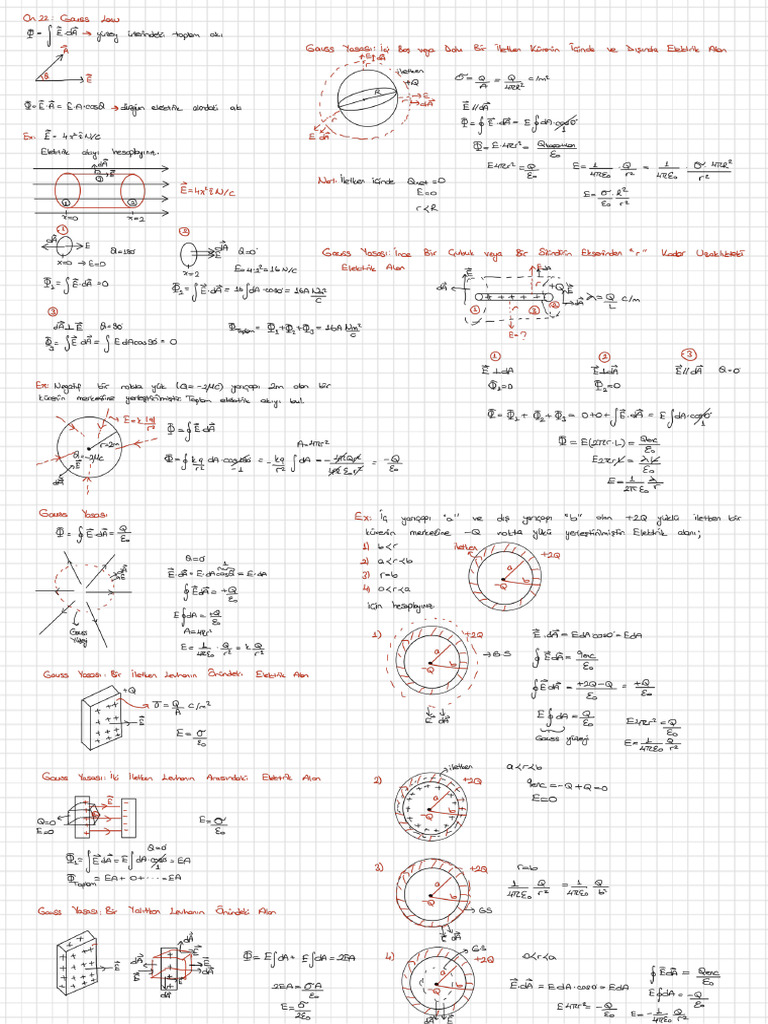 Ch.22: Gauss Law
Φ = ∫ E⃗.dA⃗ → yüzey üzerindeki toplam akı
A⃗
θ
E⃗
Φ = E⃗.A⃗ = E.A.cosθ → düzgün elektrik alandaki akı
Ex: E⃗ = 4x² î N/C
Elektrik akıyı hesaplayınız.
dA⃗
③ E⃗
① ②
E⃗ = 4x² î N/C
x=0 x=2
①
dA⃗ E θ=180°
x=0 → E=0
Φ₁ = ∫ E⃗.dA⃗ = 0
②
dA⃗ E θ=0°
x=2
E = 4.2² = 16 N/C
Φ₂ = ∫ E⃗.dA⃗ = 16 ∫ dA.cos0° = 16A Nm²/C
③
dA⃗ ⊥ E θ=90°
Φ₃ = ∫ E⃗.dA⃗ = ∫ E dA cos90° = 0
Φ Toplam = Φ₁+Φ₂+Φ₃ = 16A Nm²/C
Ex: Negatif bir nokta yük (Q=-2μC) yarıçapı 2m olan bir
kürenin merkezine yerleştirilmiştir. Toplam elektrik akıyı bul.
E = k |q|/r²
r=2m
Q=-2μC
E⃗
dA⃗
Φ = ∮ E⃗.dA⃗
A=4πr²
Φ = ∮ kq/r² dA.cos180° -1 = -kq/r² ∫ dA = - 4πQr²/4πε₀r² = -Q/ε₀
Gauss Yasası
Φ = ∮ E⃗.dA⃗ = Q/ε₀
Gauss
Yüzeyi
θ=0°
E⃗.dA⃗ = E.dA cos0° 1 = E.dA
∮ E⃗dA⃗ = +Q/ε₀
E∮dA = +Q/ε₀
A=4πr²
E = 1/4πε₀ . Q/r² = k Q/r²
Gauss Yasası: Bir İletken Levhanın Önündeki Elektrik Alan
+Q
σ = Q/A C/m²
E⃗
E = σ/ε₀
Gauss Yasası: İki İletken Levhanın Arasındaki Elektrik Alan
Q=0
E=0
E⃗
E = σ/ε₀
θ=0°
Φ₁ = ∫ E⃗dA⃗ = E∫dA.cos0° 1 = EA
Φ Toplam = EA + 0 + ---- = EA
Gauss Yasası: Bir Yalıtkan Levhanın Önündeki Alan
E⃗
dA⃗
Φ = E∫dA + E∫dA = 2EA
2EA = σA/ε₀
E = σ/2ε₀
Gauss Yasası: İçi Boş veya Dolu Bir İletken Kürenin İçinde ve Dışında Elektrik Alan
E dA⃗
r
iletken
+Q
R
r → E
→ dA⃗
E dA⃗
σ = Q/A = Q/4πR² C/m²
E⃗ // dA⃗
Φ = ∮ E⃗.dA⃗ = E∮dA.cos0° 1
Φ = E.4πr² = Qkapalı/ε₀
E4πr² = Q/ε₀
E = 1/4πε₀ . Q/r² = 1/4πε₀ . σ.4πR²/r²
E = σ/ε₀ . R²/r²
Not: İletken içinde Qnet = 0
E=0
r<R
Gauss Yasası: İnce Bir Çubuk veya Bir Silindirin Ekseninden "r" Kadar Uzaklıktaki
Elektrik Alan
E⃗ E dA⃗
dA⃗ r +Q
① ③ ②
r
E=?
λ = Q/L C/m
① ② ③
E⃗ ⊥ dA E⃗ ⊥ dA⃗ E⃗ // dA⃗ θ=0
Φ₁=0 Φ₂=0
Φ = Φ₁ + Φ₂ + Φ₃ = 0+0+∫ E⃗.dA⃗ = E∫dA.cos0° 1
Φ = E(2πr.L) = Qenc/ε₀
E2πrL = λL/ε₀
E = 1/2πε₀ λ/r
Ex: İç yarıçapı "a" ve dış yarıçapı "b" olan +2Q yüklü iletken bir
kürenin merkezine -Q nokta yükü yerleştirilmiştir. Elektrik alanı;
1) b<r
2) a<r<b
3) r=b
4) 0<r<a
için hesaplayınız.
iletken
+2Q
a
-Q b
1)
+2Q
→ G.S
a
-Q b
E⃗ dA⃗
E⃗.dA⃗ = EdAcos0° = EdA
∮ E⃗dA⃗ = qenc/ε₀
∮ E⃗dA⃗ = +2Q-Q/ε₀ = +Q/ε₀
E∮dA = Q/ε₀
Gauss yüzeyi
E4πr² = Q/ε₀
E = 1/4πε₀ Q/r²
2)
iletken
+2Q
a
-Q b
a<r<b
qenc = -Q+Q = 0
E=0
3)
+2Q
a
-Q b
GS
E⃗ dA⃗
r=b
1/4πε₀ Q/r² = 1/4πε₀ Q/b²
4)
G.S
+2Q
a
-Q b
dA⃗ E
0<r<a
E⃗dA⃗ = EdA.cos0° = EdA
E4πr² = -Q/ε₀
∮ E⃗dA⃗ = Qenc/ε₀
E∮dA = -Q/ε₀
E = -1/4πε₀ Q/r²